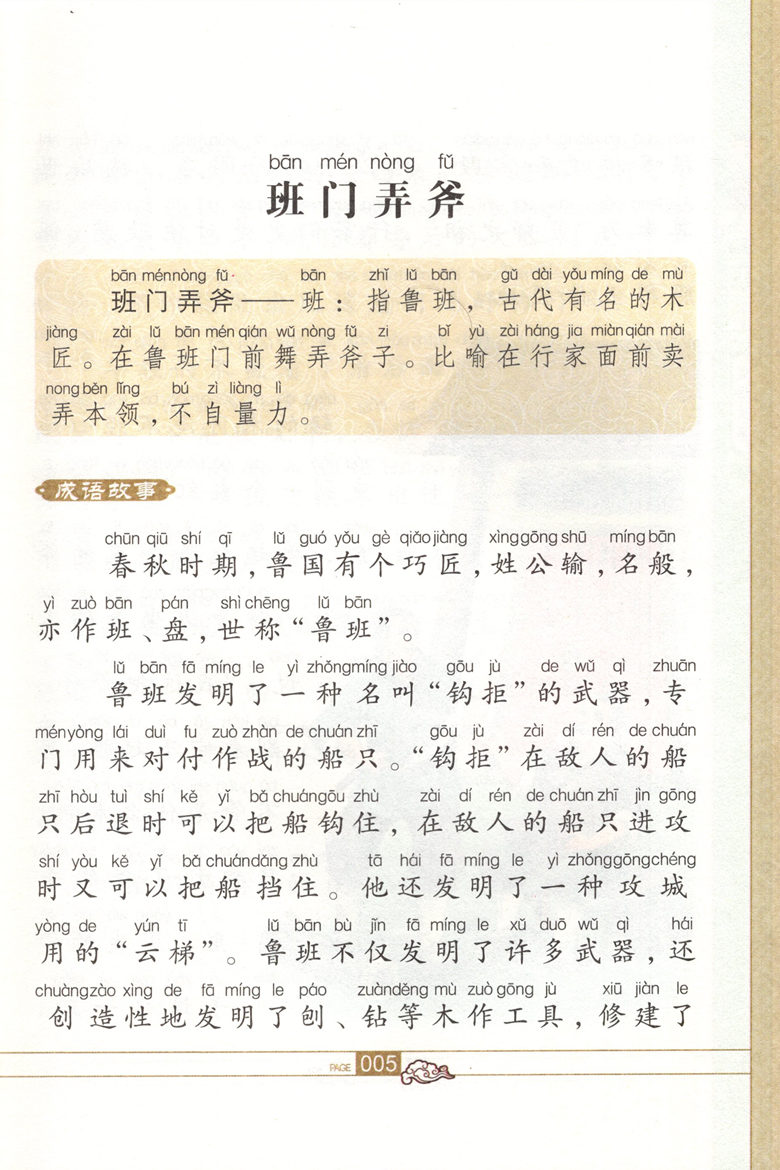 bān mén nòng fǔ
班门弄斧
bān mén nòng fǔ bān zhǐ lǔ bān gǔ dài yǒu míng de mù
班门弄斧——班：指鲁班，古代有名的木
jiàng zài lǔ bān mén qián wǔ nòng fǔ zi bǐ yù zài háng jia miàn qián mài
匠。在鲁班门前舞弄斧子。比喻在行家面前卖
nong běn lǐng bú zì liàng lì
弄本领，不自量力。
成语故事
chūn qiū shí qī lǔ guó yǒu gè qiǎo jiàng xìng gōng shū míng bān
春秋时期，鲁国有个巧匠，姓公输，名般，
yì zuò bān pán shì chēng lǔ bān
亦作班、盘，世称“鲁班”。
lǔ bān fā míng le yì zhǒng míng jiào gōu jù de wǔ qì zhuān
鲁班发明了一种名叫“钩拒”的武器，专
mén yòng lái duì fu zuò zhàn de chuán zhī gōu jù zài dí rén de chuán
门用来对付作战的船只。“钩拒”在敌人的船
zhī hòu tuì shí kě yǐ bǎ chuán gōu zhù zài dí rén de chuán zhī jìn gōng
只后退时可以把船钩住，在敌人的船只进攻
shí yòu kě yǐ bǎ chuán dǎng zhù tā hái fā míng le yì zhǒng gōng chéng
时又可以把船挡住。他还发明了一种攻城
yòng de yún tī lǔ bān bù jǐn fā míng le xǔ duō wǔ qì hái
用的“云梯”。鲁班不仅发明了许多武器，还
chuàng zào xìng de fā míng le páo zuàn děng mù zuò gōng jù xiū jiàn le
创造性地发明了刨、钻等木作工具，修建了
PAGE 005